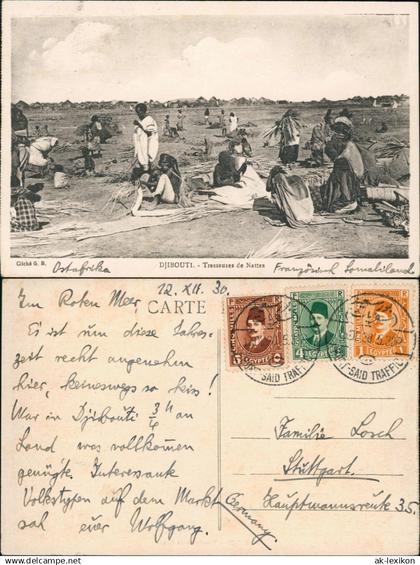 Cliché G. B.
DJIBOUTI. - Tresseuses de Nattes
Ostafrika
Französisch Somaliland
CARTE
Im Roten Meer, 12. XII. 30.
Es ist um diese Jahres-
zeit recht angenehm
hier, keineswegs so heiss!
War in Djibouti 3/4 h an
Land was vollkommen
genügte. Interessante
Volkstypen auf dem Markt
sah euer Wolfgang.
5 EGYPTE 5
4 EGYPTE
1 EGYPTE
PORT-SAID TRAFFIC
PORT-SAID TRAFFIC
Familie Losch
Stuttgart.
Hauptmannsreute 35.
Germany
www.ak-ansichtskarten.de
© ak-lexikon.com